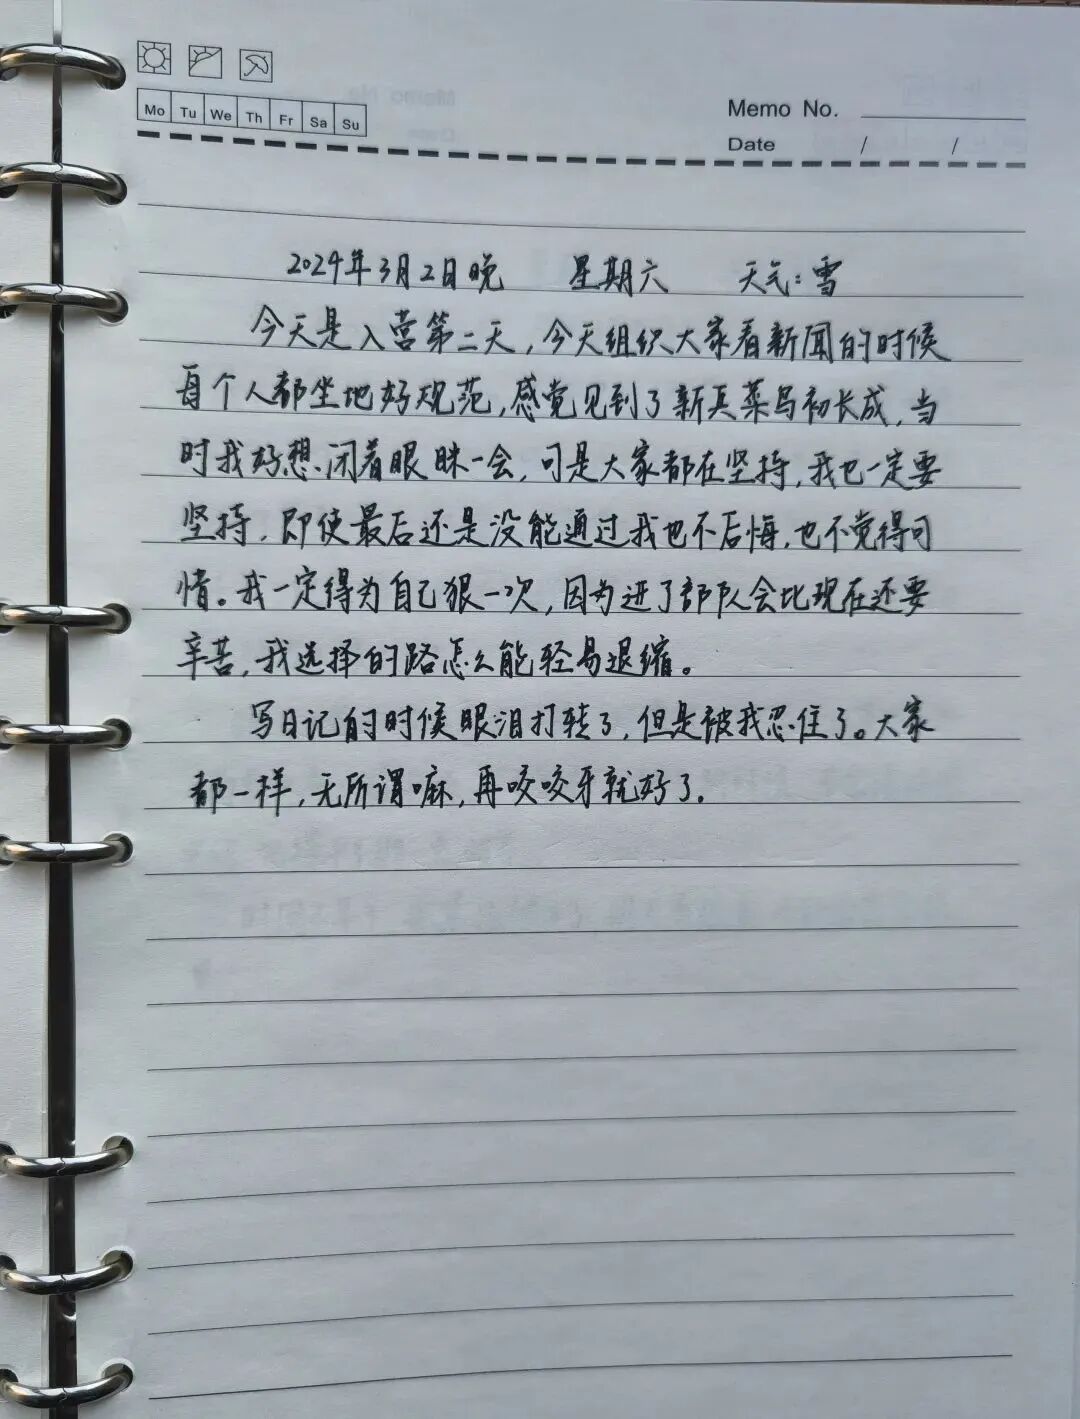 Mo Tu We Th Fr Sa Su
Memo No.
Date / /
2024年3月2日晚 星期六 天气:雪
今天是入营第二天,今天组织大家看新闻的时候
每个人都坐地好规范,感觉见到了新兵菜鸟初长成,当
时我好想闭着眼眯一会,可是大家都在坚持,我也一定要
坚持,即使最后还是没能通过我也不后悔,也不觉得可
惜。我一定得为自己狠一次,因为进了部队会比现在还要
辛苦,我选择的路怎么能轻易退缩。
写日记的时候眼泪打转了,但是被我忍住了。大家
都一样,无所谓嘛,再咬咬牙就好了.